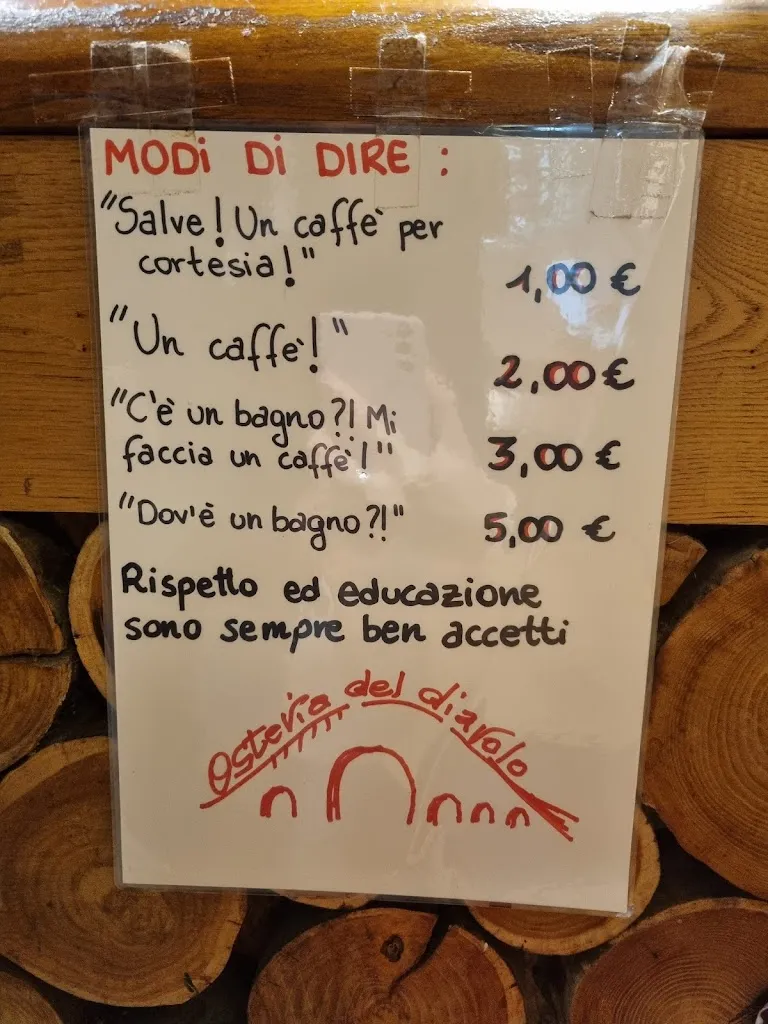 MODi Di DIRE :
"Salve! Un caffè per
cortesia!" 1,00 €
"Un caffè!" 2,00 €
"C'è un bagno?! Mi
faccia un caffè!" 3,00 €
"Dov'è un bagno?!" 5,00 €
Rispetto ed educazione
sono sempre ben accetti
Osteria del diavolo